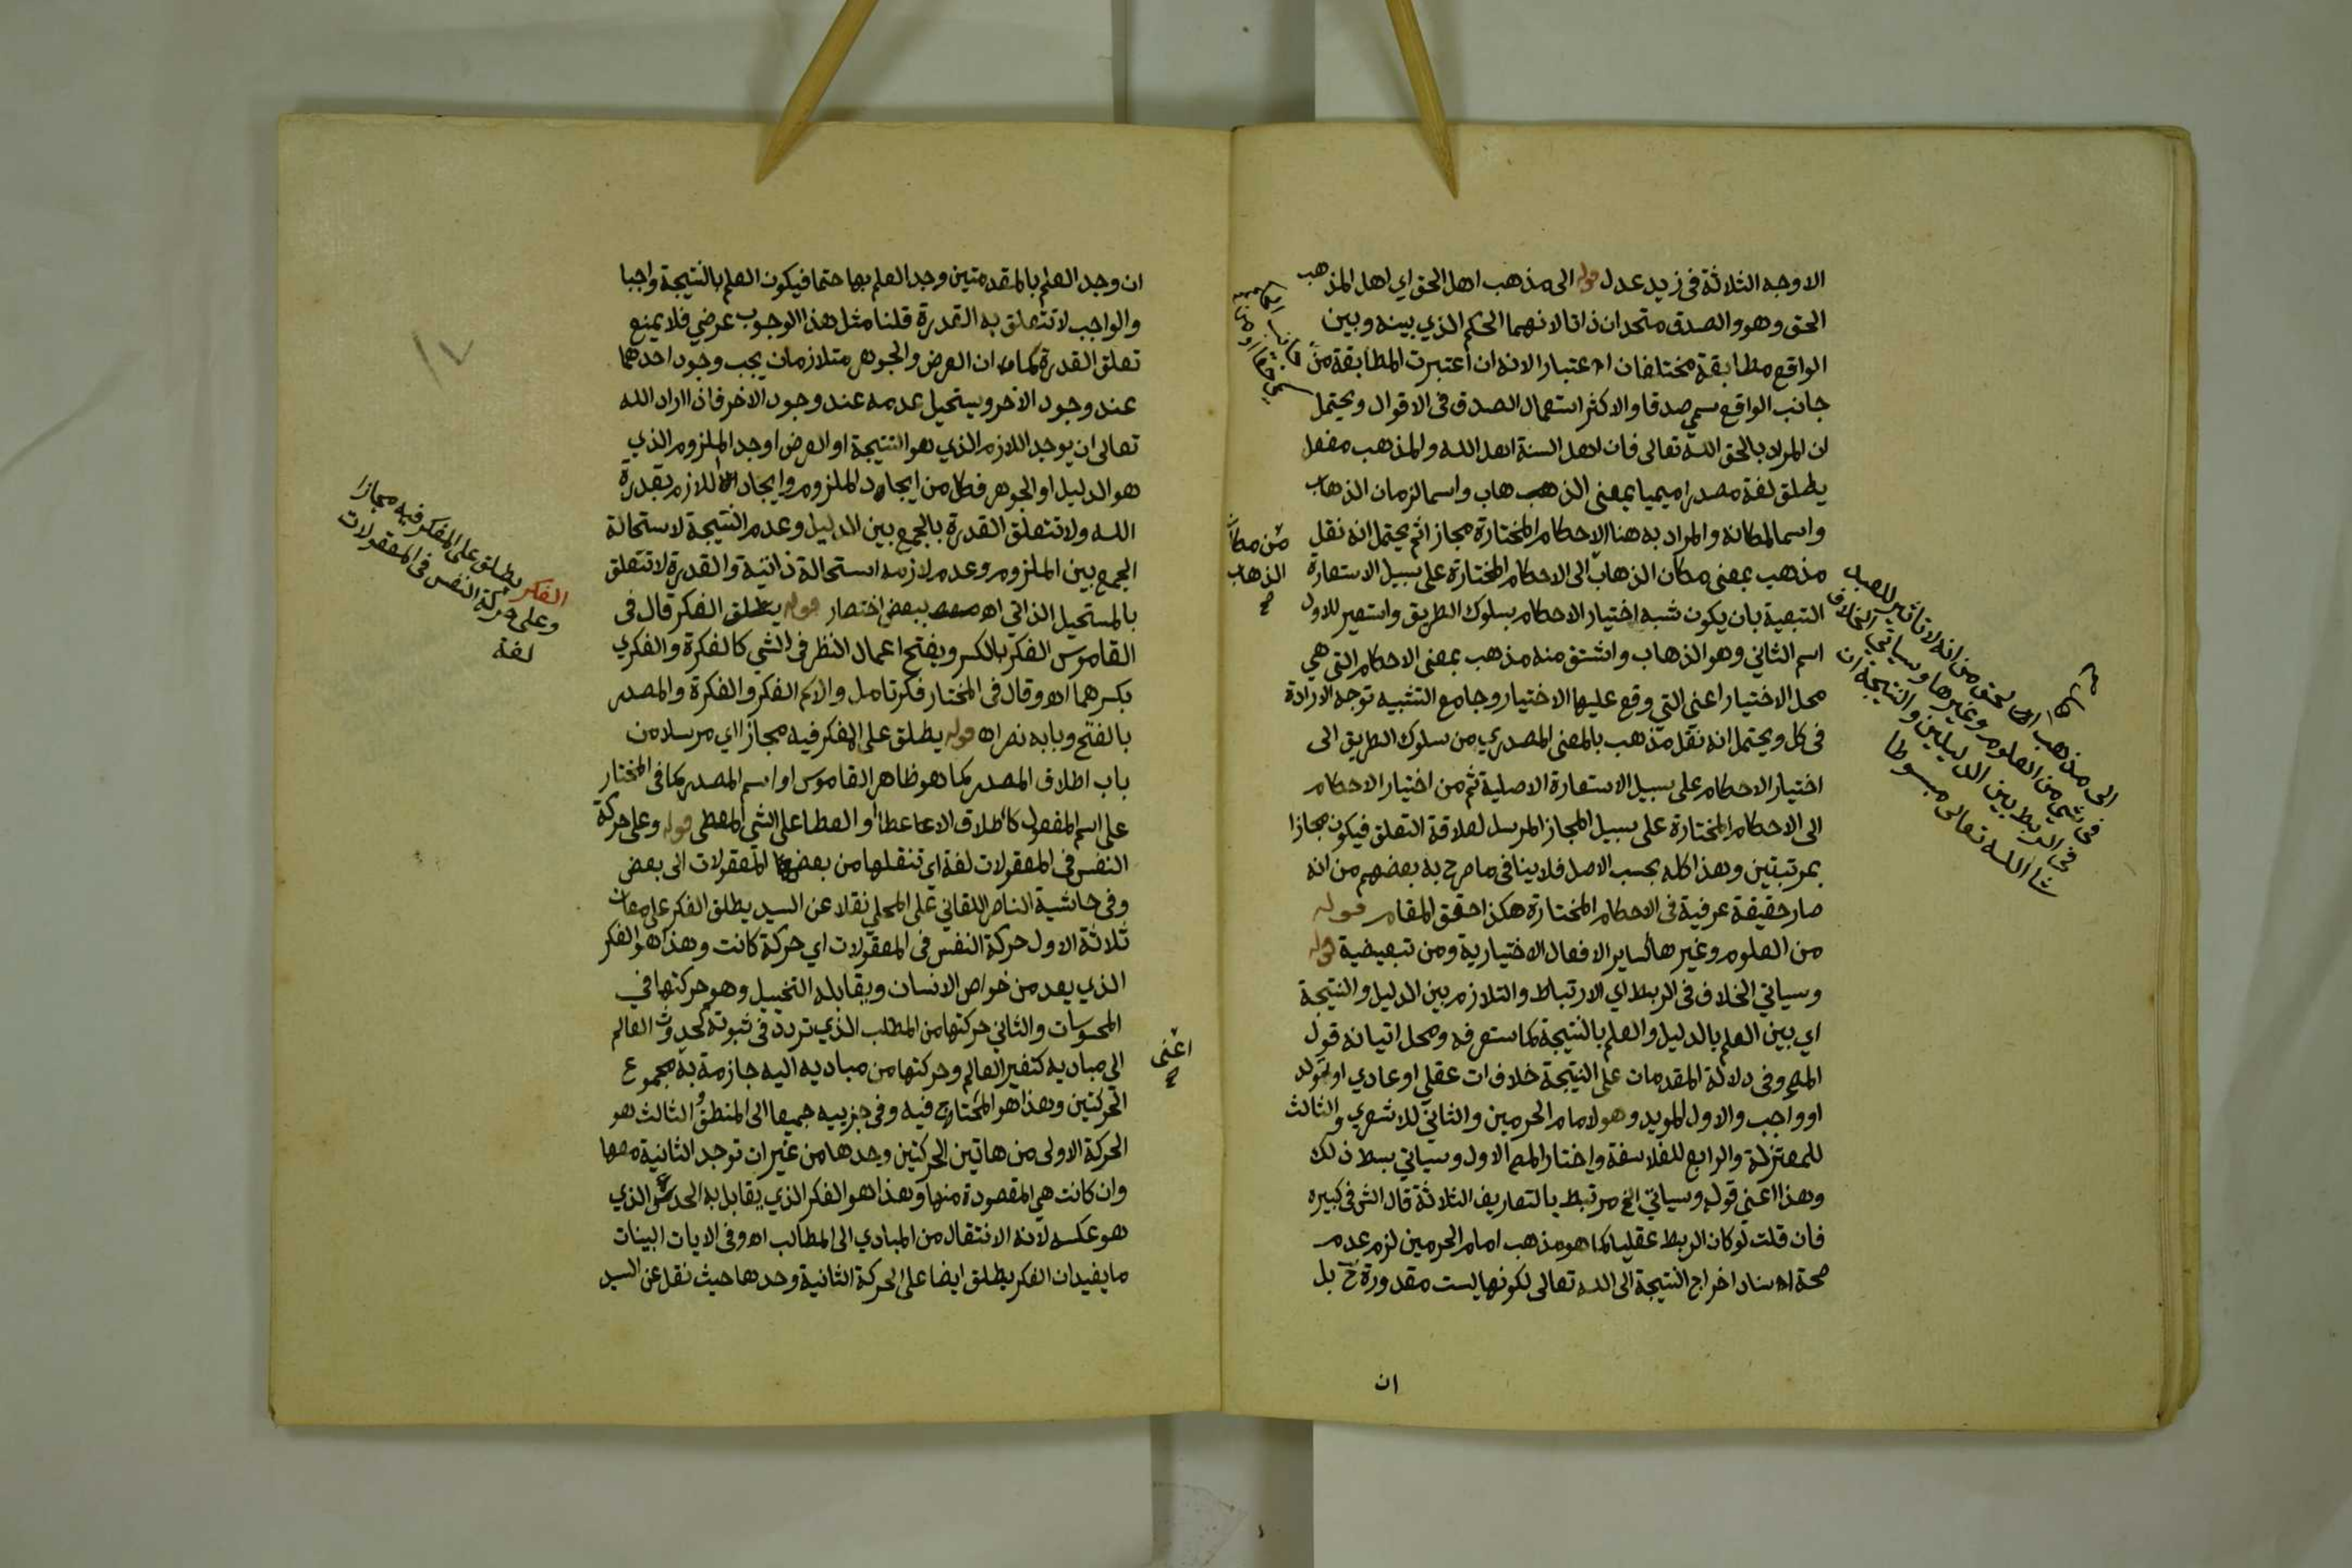 الاوجه الثلاثة فى زيد عدل قوله الى مذهب اهل الحق اي اهل المذهب
الحق وهو والصدق متحدان ذاتا لانهما الحكم الذي بينه وبين
الواقع مطابقة مختلفان اعتبارا لانه ان اعتبرت المطابقة من
جانب الواقع سمي صدقا والاكثر استعمال الصدق فى الاقوال ويحتمل
ان المراد بالحق الله تعالى فان اهل السنة اهل الله والمذهب مفعل
يطلق لغة مصدرا ميميا بمعنى الذهاب واسما لزمان الذهاب
واسما لمكانه والمراد به هنا الاحكام المختارة مجازا ثم يحتمل انه نقل
من مكان
الذهاب
صح
مذهب بمعنى مكان الذهاب الى الاحكام المختارة على سبيل الاستعارة
التبعية بان يكون شبه اختيار الاحكام بسلوك الطريق واستعير للاول
اسم الثاني وهو الذهاب واشتق منه مذهب بمعنى الاحكام التي هي
محل الاختيار اعني التي وقع عليها الاختيار وجامع التشبيه توجه الارادة
فى كل ويحتمل انه نقل مذهب بالمعنى المصدري من سلوك الطريق الى
اختيار الاحكام على سبيل الاستعارة الاصلية ثم من اختيار الاحكام
الى الاحكام المختارة على سبيل المجاز المرسل لعلاقة التعلق فيكون مجازا
بمرتبتين وهذا كله بحسب الاصل فلا ينافى ما صرح به بعضهم من انه
صار حقيقة عرفية فى الاحكام المختارة هكذا حقق المقام قوله
من العلوم وغيرها كساير الافعال الاختيارية ومن تبعيضية قوله
وسياتي الخلاف فى الربط اي الارتباط والتلازم بين الدليل والنتيجة
اي بين العلم بالدليل والعلم بالنتيجة كما ستعرفه ومحل اتيانه قول
المص وفى دلالة المقدمات على النتيجة خلاف ات عقلي او عادي او تولد
او واجب والاول المويد وهو لامام الحرمين والثاني للاشعري والثالث
للمعتزلة والرابع للفلاسفة واختار المص الاول وسياتي بسط ذلك
وهذا اعني قوله وسياتي الخ مرتبط بالتعاريف الثلاثة قال الش فى كبيره
فان قلت لو كان الربط عقليا كما هو مذهب امام الحرمين لزم عدم
صحة اسناد اخراج النتيجة الى الله تعالى لكونها ليست مقدورة ح بل
ان
الى مذهب اهل الحق من انه لا تاثير للعبد
فى شي من العلوم وغيرها وسياتي الخلاف
فى الربط بين الدليلين والنتيجة ان
شا الله تعالى مبسوطا
ان وجد العلم بالمقدمتين وجد العلم بها حتما فيكون العلم بالنتيجة واجبا
والواجب لا تتعلق به القدرة قلنا مثل هذا الوجوب عرضي فلا يمنع
تعلق القدرة كما ان العرض والجوهر متلازمان يجب وجود احدهما
عند وجود الاخر ويستحيل عدمه عند وجود الاخر فاذا اراد الله
تعالى ان يوجد اللازم الذي هو النتيجة او العرض اوجد الملزوم الذي
هو الدليل او الجوهر فكل من ايجاد الملزوم وايجاد اللازم بقدرة
الله ولا تتعلق القدرة بالجمع بين الدليل وعدم النتيجة لاستحالة
الجمع بين الملزوم وعدم لازمه استحالة ذاتية والقدرة لا تتعلق
بالمستحيل الذاتي اه ببعض اختصار قوله يطلق الفكر قال فى
القاموس الفكر بالكسر ويفتح اعمال النظر فى الشي كالفكرة والفكري
بكسرهما اه وقال فى المختار فكر تامل والاسم الفكر والفكرة والمصدر
بالفتح وبابه نصر اه قوله يطلق على المفكر فيه مجازا اي مرسلا من
باب اطلاق المصدر كما هو ظاهر القاموس او اسم المصدر كما فى المختار
على اسم المفعول كاطلاق الاعطا او العطا على الشي المعطى قوله وعلى حركة
النفس فى المعقولات لغة اي تنقلها من بعض المعقولات الى بعض
وفى حاشية الناصر اللقاني على المحلي نقلا عن السيد يطلق الفكر على معان
ثلاثة الاول حركة النفس فى المعقولات اي حركة كانت وهذا هو الفكر
الذي يعد من خواص الانسان ويقابله التخييل وهو حركتها في
المحسوسات والثاني حركتها من المطلب الذي تردد فى ثبوته كحدوث العالم
الى مباديه كتغير العالم وحركتها من مباديه اليه جازمة به مجموع
اعنى
صح
الحركتين وهذا هو المحتاج فيه وفى جزييه جميعا الى المنطق والثالث هو
الحركة الاولى من هاتين الحركتين وحدها من غير ان توجد الثانية معها
وان كانت هي المقصودة منها وهذا هو الفكر الذي يقابل به الحدس الذي
هو عكسه لانه الانتقال من المبادي الى المطالب اه وفى الايات البينات
ما يفيد ان الفكر يطلق ايضا على الحركة الثانية وحدها حيث نقل عن السيد
الفكر يطلق على المفكر فيه مجازا
وعلى حركة النفس فى المعقولات
لغة
١٧